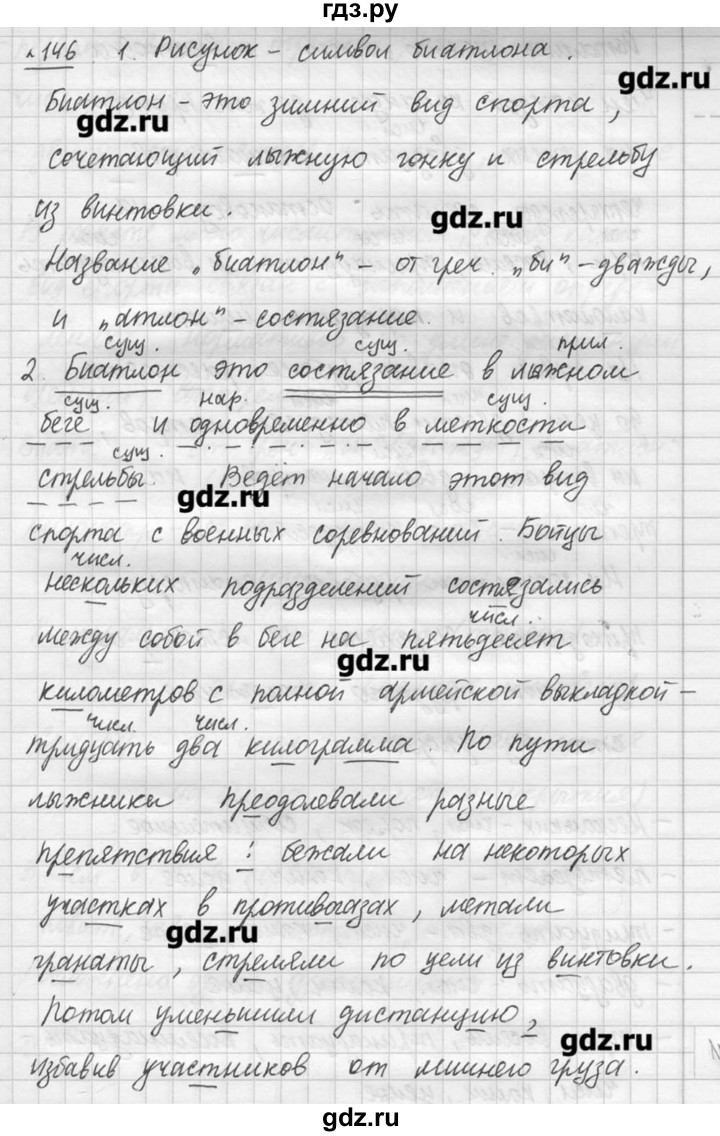 гдз.ру
№146 1. Рисунок - символ биатлона.
gdz.ru
Биатлон - это зимний вид спорта,
gdz.ru
сочетающий лыжную гонку и стрельбу
из винтовки.
gdz.ru
Название „биатлон" - от греч. „би" - дважды,
и „атлон" - состязание.
сущ. сущ. прил.
2. Биатлон это состязание в лыжном
сущ. нар. сущ.
беге и одновременно в меткости
сущ.
стрельбы. Ведёт начало этот вид
gdz.ru
спорта с военных соревнований. Бойцы
числ.
нескольких подразделений состязались
числ.
между собой в беге на пятьдесят
gdz.ru
километров с полной армейской выкладкой -
числ. числ.
тридцать два килограмма. По пути
лыжники преодолевали разные
препятствия : бежали на некоторых
участках в противогазах, метали
gdz.ru
гранаты, стреляли по цели из винтовки.
Потом уменьшили дистанцию,
gdz.ru
избавив участников от лишнего груза.
gdz.ru